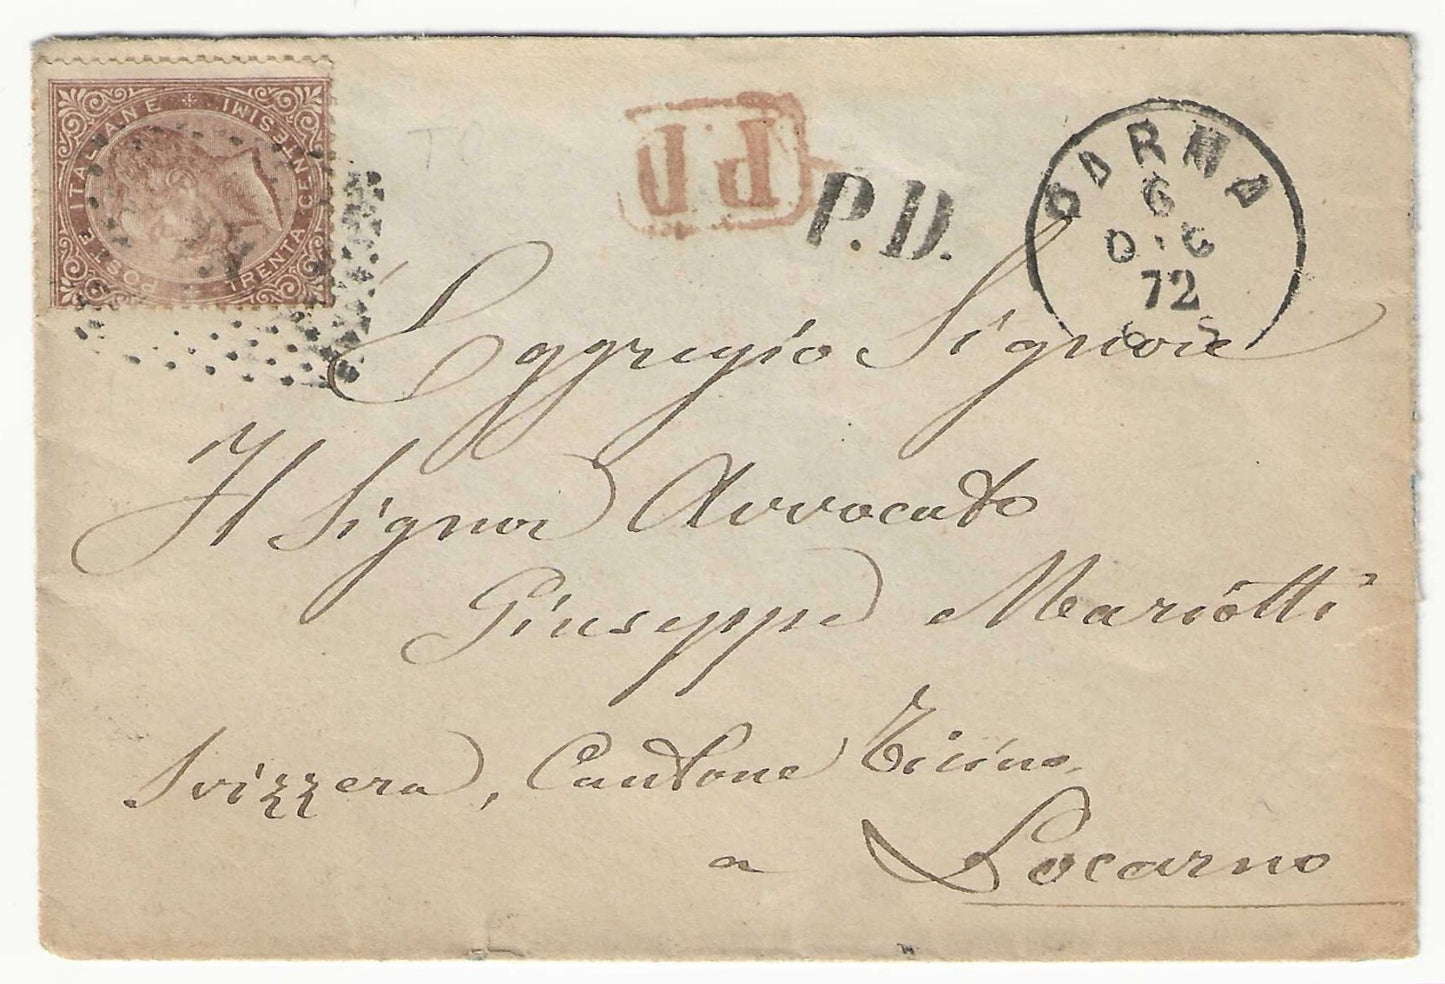 POSTE ITALIANE
TRENTA CENTESIMI
TO
P.D
P.D.
PARMA
6
DIC
72
6 S
Eggregio Signore
Il Signor Avvocato
Giuseppe Mariotti
Svizzera, Cantone Ticino
a Locarno